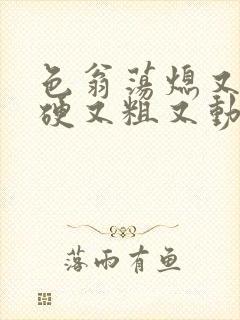 色翁荡熄又
硬又粗又動
落雨有鱼